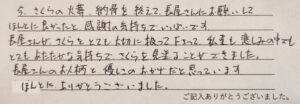 今、さくらの火葬、納骨を終えて、長屋さんにお願いして
ほんとに良かったと感謝の気持ちでいっぱいです。
長屋さんが、さくらをとても大切に扱って下さって、私達も悲しみの中でも
とてもあたたかな気持ちでさくらを見送ることができました。
長屋さんのお人柄と優しさのおかげだと思っています
ほんとにありがとうございました。
ご記入ありがとうございました。